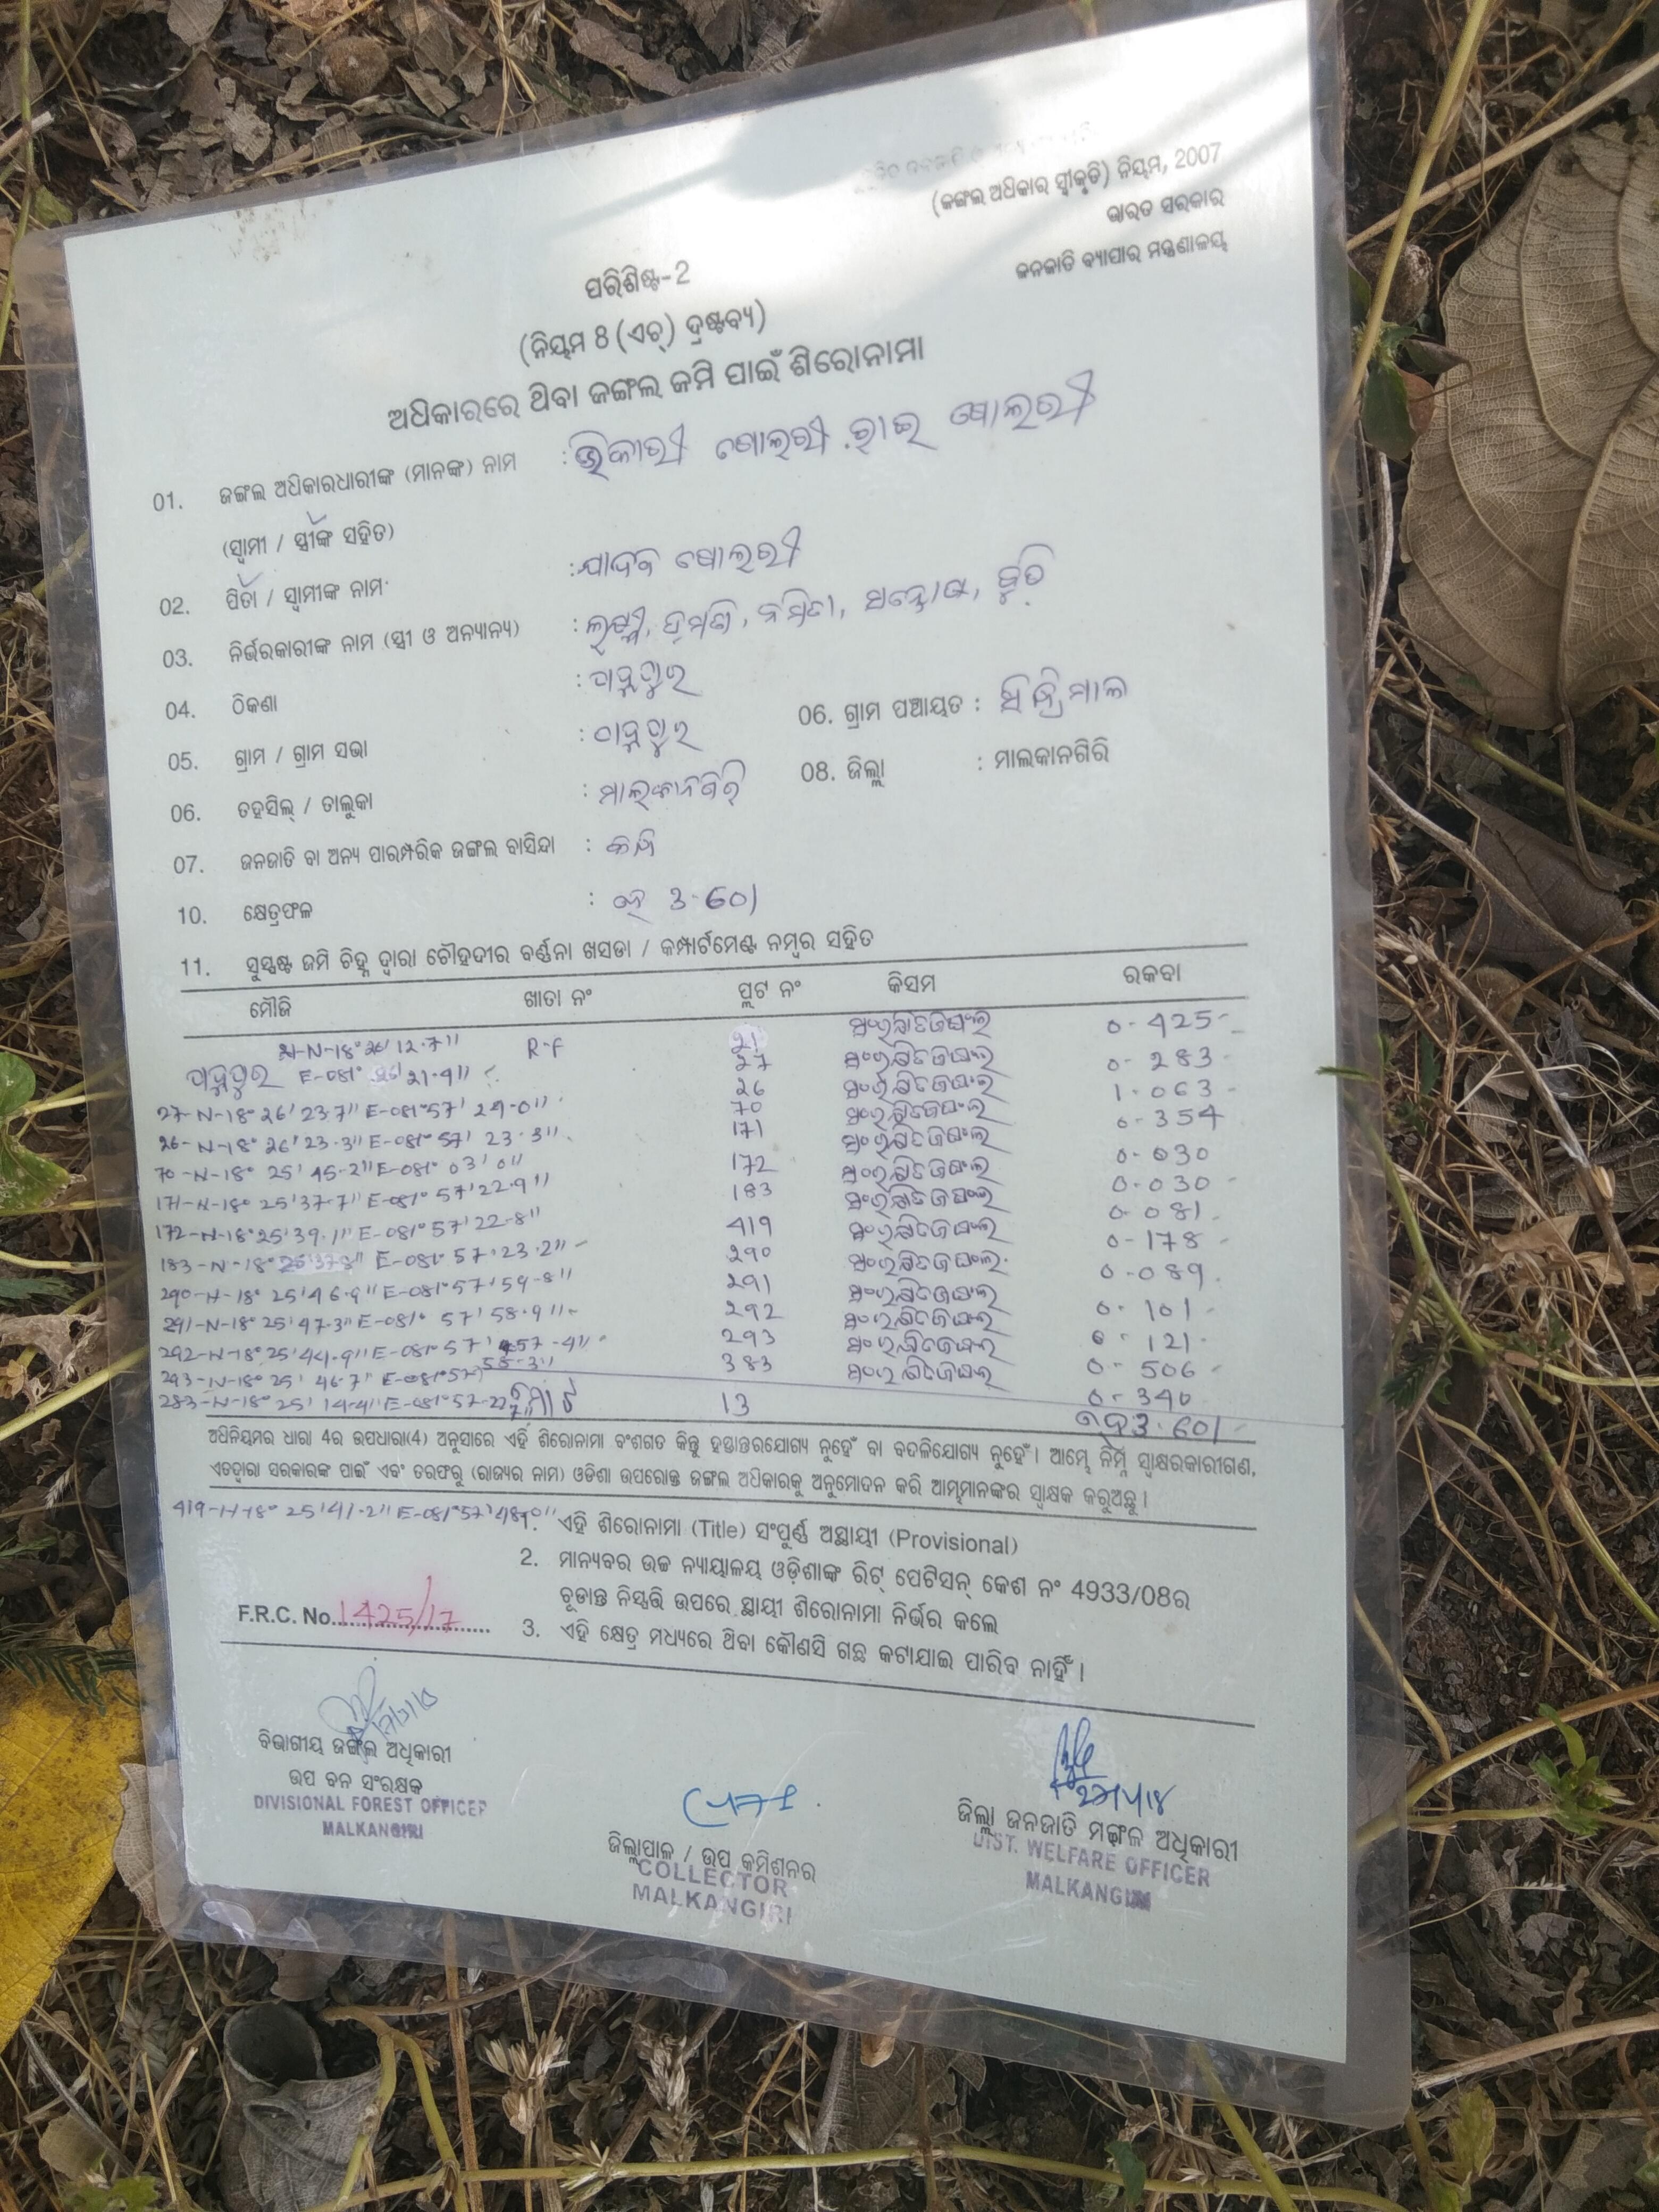 (ଜଙ୍ଗଲ ଅଧିକାର ସ୍ୱୀକୃତି) ନିୟମ, 2007
ଭାରତ ସରକାର
ଜନଜାତି ବ୍ୟାପାର ମନ୍ତ୍ରଣାଳୟ
ପରିଶିଷ୍ଟ-2
(ନିୟମ 8 (ଏଚ୍) ଦ୍ରଷ୍ଟବ୍ୟ)
ଅଧିକାରରେ ଥିବା ଜଙ୍ଗଲ ଜମି ପାଇଁ ଶିରୋନାମା
01. ଜଙ୍ଗଲ ଅଧିକାରଧାରୀଙ୍କ (ମାନଙ୍କ) ନାମ :
(ସ୍ୱାମୀ / ସ୍ତ୍ରୀଙ୍କ ସହିତ)
02. ପିତା / ସ୍ୱାମୀଙ୍କ ନାମ :
03. ନିର୍ଭରକାରୀଙ୍କ ନାମ (ସ୍ତ୍ରୀ ଓ ଅନ୍ୟାନ୍ୟ) :
04. ଠିକଣା : ପଦ୍ମପୁର
05. ଗ୍ରାମ / ଗ୍ରାମ ସଭା : ପଦ୍ମପୁର 06. ଗ୍ରାମ ପଞ୍ଚାୟତ :
06. ତହସିଲ୍ / ତାଲୁକା : ମାଲକାନଗିରି 08. ଜିଲ୍ଲା : ମାଲକାନଗିରି
07. ଜନଜାତି ବା ଅନ୍ୟ ପାରମ୍ପରିକ ଜଙ୍ଗଲ ବାସିନ୍ଦା :
10. କ୍ଷେତ୍ରଫଳ : 3.601
11. ସୁସ୍ପଷ୍ଟ ଜମି ଚିହ୍ନ ଦ୍ୱାରା ଚୌହଦୀର ବର୍ଣ୍ଣନା ଖସଡା / କମ୍ପାର୍ଟମେଣ୍ଟ ନମ୍ବର ସହିତ
ମୌଜି ଖାତା ନଂ ପ୍ଲଟ ନଂ କିସମ ରକବା
21-N-18° 26' 12.7" R-F 21 ସଂରକ୍ଷିତ ଜଙ୍ଗଲ 0-425
ପଦ୍ମପୁର E-081° 21.9" 27 ସଂରକ୍ଷିତ ଜଙ୍ଗଲ 0-283
27-N-18° 26' 23.7" E-081° 57' 29.0" 26 ସଂରକ୍ଷିତ ଜଙ୍ଗଲ 1.063
26-N-18° 26' 23.3" E-081° 57' 23.3" 70 ସଂରକ୍ଷିତ ଜଙ୍ଗଲ 0-354
70-N-18° 25' 45.2" E-081° 03' 0" 171 ସଂରକ୍ଷିତ ଜଙ୍ଗଲ 0-030
171-N-18° 25' 37.7" E-081° 57' 22.9" 172 ସଂରକ୍ଷିତ ଜଙ୍ଗଲ 0-030
172-N-18° 25' 39.1" E-081° 57' 22-8" 183 ସଂରକ୍ଷିତ ଜଙ୍ଗଲ 0-081
183-N-18° 25' 37.8" E-081° 57' 23.2" 419 ସଂରକ୍ଷିତ ଜଙ୍ଗଲ 0-178
290-N-18° 25' 46.9" E-081° 57' 59-8" 290 ସଂରକ୍ଷିତ ଜଙ୍ଗଲ 0-089
291-N-18° 25' 47.3" E-081° 57' 58.9" 291 ସଂରକ୍ଷିତ ଜଙ୍ଗଲ 0-101
292-N-18° 25' 44.9" E-081° 57' 57-4" 292 ସଂରକ୍ଷିତ ଜଙ୍ଗଲ 0-121
293-N-18° 25' 46.7" E-081° 57' 55-3" 293 ସଂରକ୍ଷିତ ଜଙ୍ଗଲ 0-506
283-N-18° 25' 14-4" E-081° 57-22 383 ସଂରକ୍ଷିତ ଜଙ୍ଗଲ 0-340
13 3.601
ଅଧିନିୟମର ଧାରା 4ର ଉପଧାରା(4) ଅନୁସାରେ ଏହି ଶିରୋନାମା ବଂଶଗତ କିନ୍ତୁ ହସ୍ତାନ୍ତରଯୋଗ୍ୟ ନୁହେଁ ବା ବଦଳିଯୋଗ୍ୟ ନୁହେଁ। ଆମ୍ଭେ ନିମ୍ନ ସ୍ୱାକ୍ଷରକାରୀଗଣ,
ଏତଦ୍ୱାରା ସରକାରଙ୍କ ପାଇଁ ଏବଂ ତରଫରୁ (ରାଜ୍ୟର ନାମ) ଓଡିଶା ଉପରୋକ୍ତ ଜଙ୍ଗଲ ଅଧିକାରକୁ ଅନୁମୋଦନ କରି ଆମ୍ଭମାନଙ୍କର ସ୍ୱାକ୍ଷକ କରୁଅଛୁ।
419-N-18° 25' 41.2" E-081° 57' 48.0"
1. ଏହି ଶିରୋନାମା (Title) ସଂପୁର୍ଣ୍ଣ ଅସ୍ଥାୟୀ (Provisional)
2. ମାନ୍ୟବର ଉଚ୍ଚ ନ୍ୟାୟାଳୟ ଓଡ଼ିଶାଙ୍କ ରିଟ୍ ପେଟିସନ୍ କେଶ ନଂ 4933/08ର
ଚୂଡାନ୍ତ ନିସ୍ପତ୍ତି ଉପରେ ସ୍ଥାୟୀ ଶିରୋନାମା ନିର୍ଭର କଲେ
F.R.C. No. 1425/17
3. ଏହି କ୍ଷେତ୍ର ମଧ୍ୟରେ ଥିବା କୌଣସି ଗଛ କଟାଯାଇ ପାରିବ ନାହିଁ।
ବିଭାଗୀୟ ଜଙ୍ଗଲ ଅଧିକାରୀ
ଉପ ବନ ସଂରକ୍ଷକ
DIVISIONAL FOREST OFFICER
MALKANGIRI
ଜିଲ୍ଲାପାଳ / ଉପ କମିଶନର
COLLECTOR
MALKANGIRI
ଜିଲ୍ଲା ଜନଜାତି ମଙ୍ଗଳ ଅଧିକାରୀ
DIST. WELFARE OFFICER
MALKANGIRI